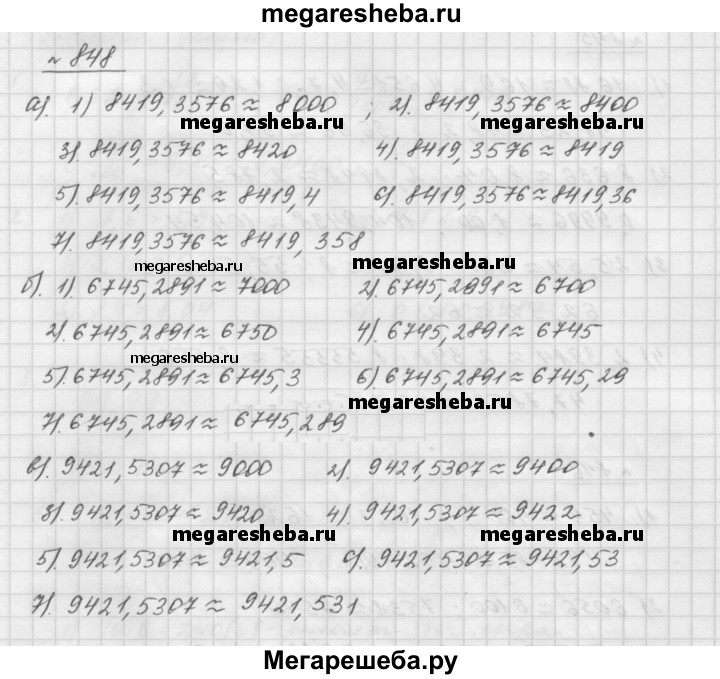 megaresheba.ru
№ 848
а). 1) 8419,3576 ≈ 8000 ; 2). 8419,3576 ≈ 8400
megaresheba.ru megaresheba.ru
3). 8419,3576 ≈ 8420 4). 8419,3576 ≈ 8419
5). 8419,3576 ≈ 8419,4 6). 8419,3576 ≈ 8419,36
7). 8419,3576 ≈ 8419,358
megaresheba.ru megaresheba.ru
б). 1). 6745,2891 ≈ 7000 2). 6745,2891 ≈ 6700
2). 6745,2891 ≈ 6750 4). 6745,2891 ≈ 6745
megaresheba.ru
5). 6745,2891 ≈ 6745,3 6). 6745,2891 ≈ 6745,29
megaresheba.ru
7). 6745,2891 ≈ 6745,289
в). 9421,5307 ≈ 9000 2). 9421,5307 ≈ 9400
3). 9421,5307 ≈ 9420 4). 9421,5307 ≈ 9422
megaresheba.ru megaresheba.ru
5). 9421,5307 ≈ 9421,5 6). 9421,5307 ≈ 9421,53
7). 9421,5307 ≈ 9421,531
Мегарешеба.ру